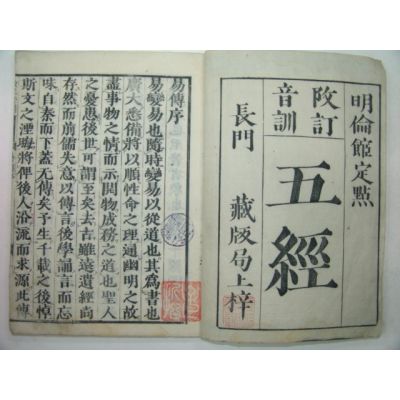 明倫館定點
改訂
音訓
五經
長門 藏版局上梓
易傳序
易變易也隨時變易以從道也其爲書也
廣大悉備將以順性命之理通幽明之故
盡事物之情而示開物成務之道也聖人
之憂患後世可謂至矣去古雖遠遺經尚
存然而前儒失意以傳言後學誦言而忘
味自秦而下蓋無傳矣予生千載之後悼
斯文之湮晦將俾後人沿流而求源此傳